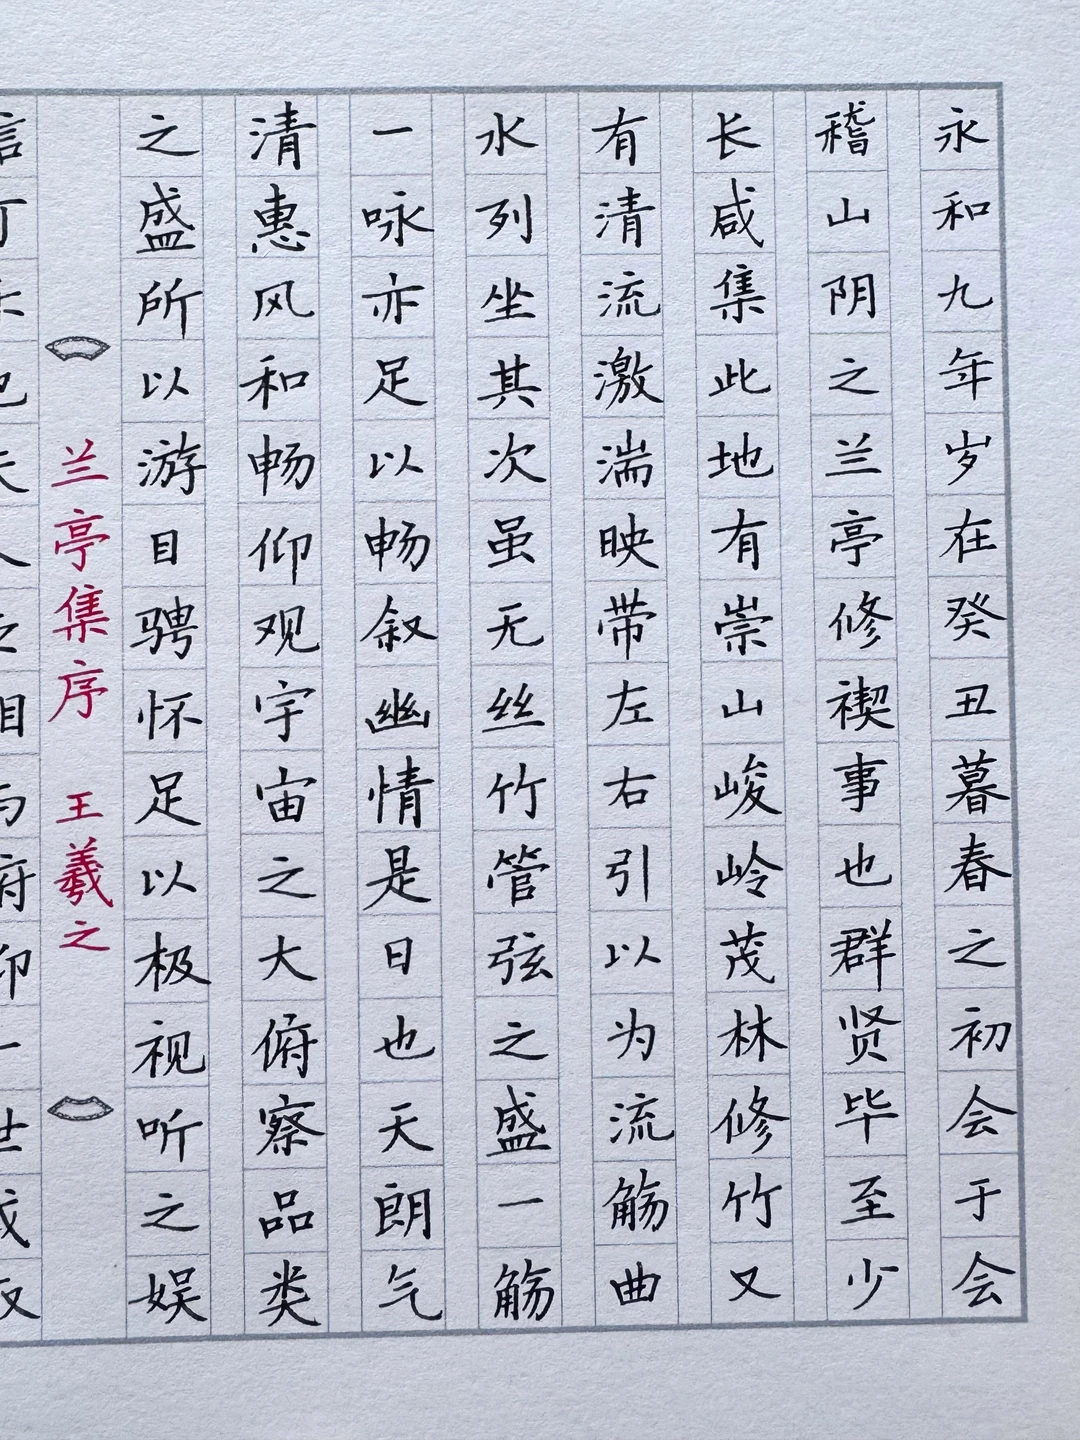 永和九年岁在癸丑暮春之初会于会
稽山阴之兰亭修禊事也群贤毕至少
长咸集此地有崇山峻岭茂林修竹又
有清流激湍映带左右引以为流觞曲
水列坐其次虽无丝竹管弦之盛一觞
一咏亦足以畅叙幽情是日也天朗气
清惠风和畅仰观宇宙之大俯察品类
之盛所以游目骋怀足以极视听之娱
兰亭集序 王羲之
信可乐也夫人之相与俯仰一世或取